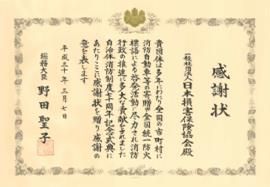 感謝状
一般社団法人日本損害保険協会殿
貴団体は多年にわたり全国の市町村に
消防自動車等の寄贈や全国統一防火
標語による啓発活動に尽力され消防
行政の推進に多大な貢献をされました
自治体消防制度七十周年記念式典に
あたりここに感謝状を贈り感謝の
意を表します
平成三十年三月七日
総務大臣 野田聖子